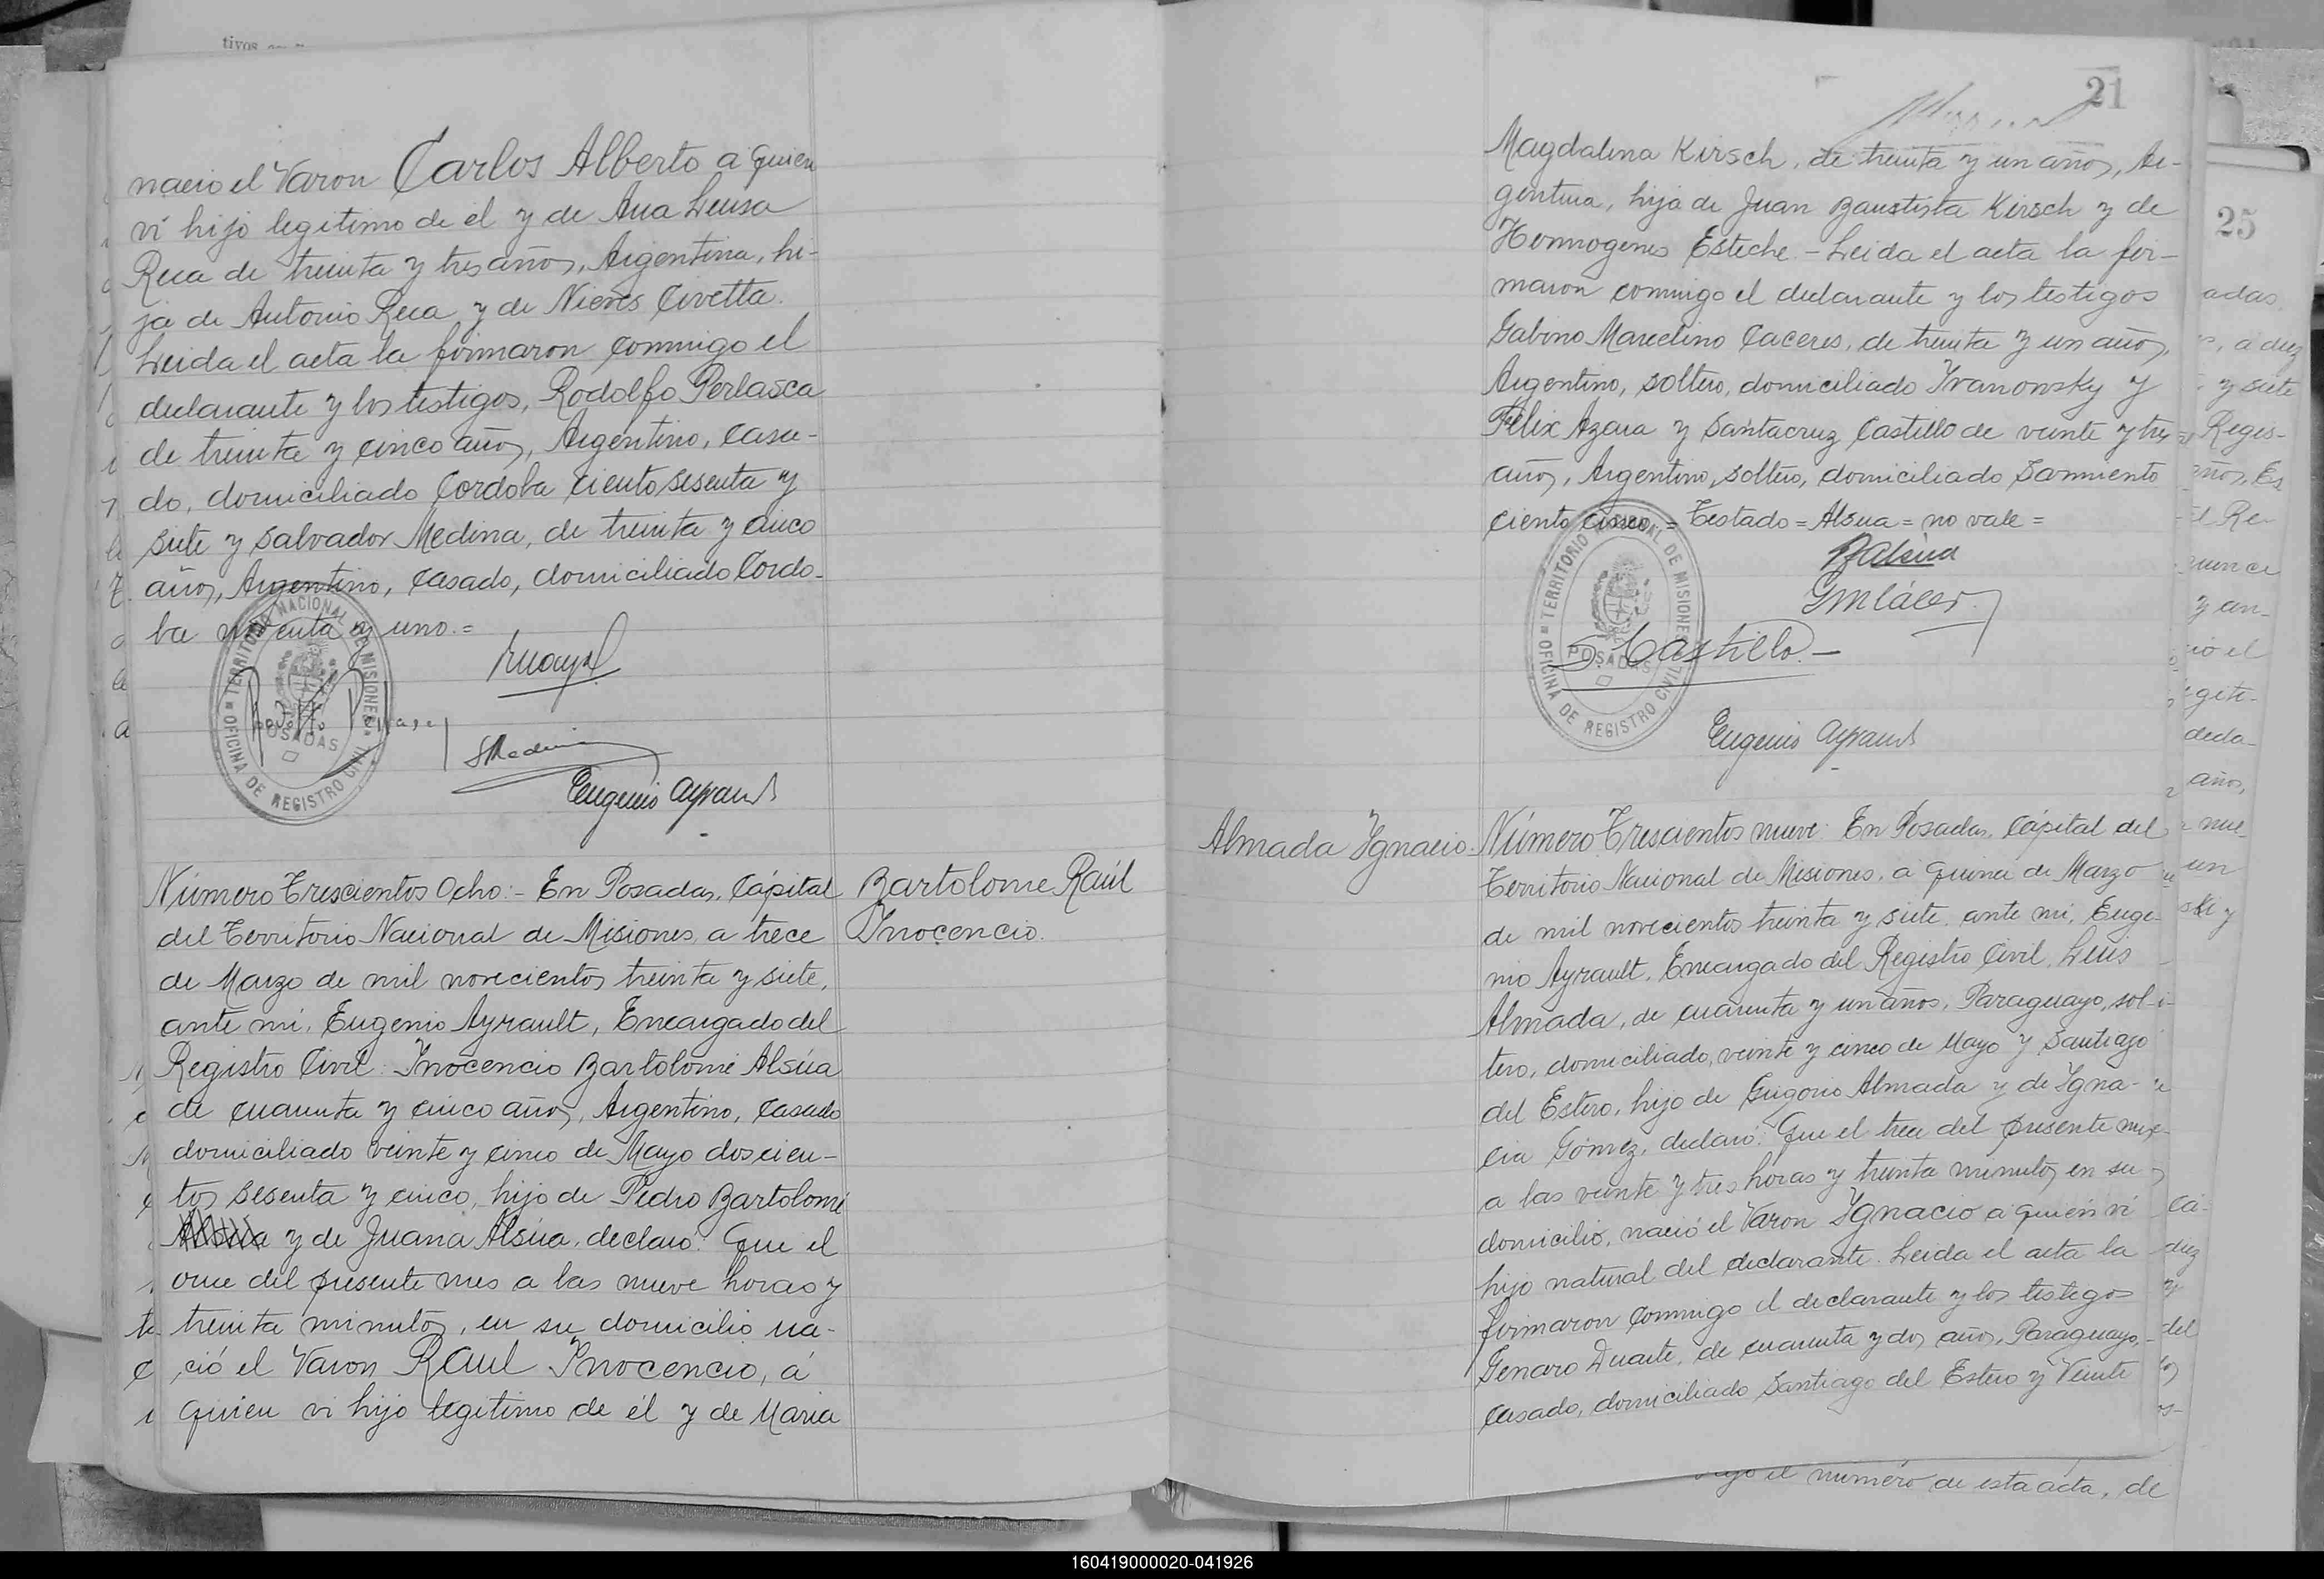 nació el Varon Carlos Alberto a quien
ví hijo legitimo de él y de Ana Luisa
Reca de treinta y tres años, Argentina, hi-
ja de Antonio Reca y de Nieves Civetta.
Leida el acta la firmaron conmigo el
declarante y los testigos, Rodolfo Perlasca
de treinta y cinco años, Argentino, casa-
do, domiciliado Cordoba ciento sesenta y
siete y Salvador Medina, de treinta y cinco
años, Argentino, casado, domiciliado Cordo-
ba noventa y uno.=
TERRITORIO NACIONAL DE MISIONES
POSADAS
OFICINA DE REGISTRO CIVIL
SMedina
Eugenio Ayrault
Bartolome Raúl
Inocencio.
Número Trescientos Ocho:- En Posadas, Cápital
del Territorio Nacional de Misiones, a trece
de Marzo de mil novecientos treinta y siete,
ante mi, Eugenio Ayrault, Encargado del
Registro Civil: Inocencio Bartolomé Alsúa
de cuarenta y cinco años, Argentino, casado
domiciliado veinte y cinco de Mayo doscien-
tos sesenta y cinco, hijo de Pedro Bartolomé
Alsua y de Juana Alsúa, declaró: Que el
once del presente mes a las nueve horas y
treinta minutos, en su domicilio na-
ció el Varon Raul Inocencio, á
quien vi hijo legitimo de él y de Maria
21
Magdalena Kirsch, de treinta y un años, Ar-
gentina, hija de Juan Baustista Kirsch y de
Hermogenes Esteche.- Leida el acta la fir-
maron conmigo el declarante y los testigos
Gabino Marcelino Caceres, de treinta y un años,
Argentino, soltero, domiciliado Ivanowsky y
Félix Azara y Santacruz Castillo de veinte y tres
años, Argentino, soltero, domiciliado Sarmiento
ciento cinco = Testado = Alsua = no vale =
TERRITORIO NACIONAL DE MISIONES
POSADAS
OFICINA DE REGISTRO CIVIL
BAlsúa
S. Castillo.-
Eugenio Ayrault
Almada Ygnacio.
Número Trescientos nueve: En Posadas, Cápital del
Territorio Nacional de Misiones, a quince de Marzo
de mil novecientos treinta y siete, ante mi, Euge-
nio Ayrault, Encargado del Registro Civil, Luis
Almada, de cuarenta y un años, Paraguayo, sol-
tero, domiciliado, veinte y cinco de Mayo y Santiago
del Estero, hijo de Gregorio Almada y de Ygna-
cia Gómez, declaró: Que el trece del presente mes
a las veinte y tres horas y treinta minutos en su
domicilio, nació el Varon Ygnacio a quien vi
hijo natural del declarante. Leida el acta la
firmaron conmigo el declarante y los testigos
Genaro Duarte, de cuarenta y dos años, Paraguayo,
casado, domiciliado Santiago del Estero y Veinte
25
adas
a diez
y siete
Regis-
el Re-
quince
y un-
ció el
decla-
años,
nue
un
diez
y
del
el número de esta acta, de
160419000020-041926